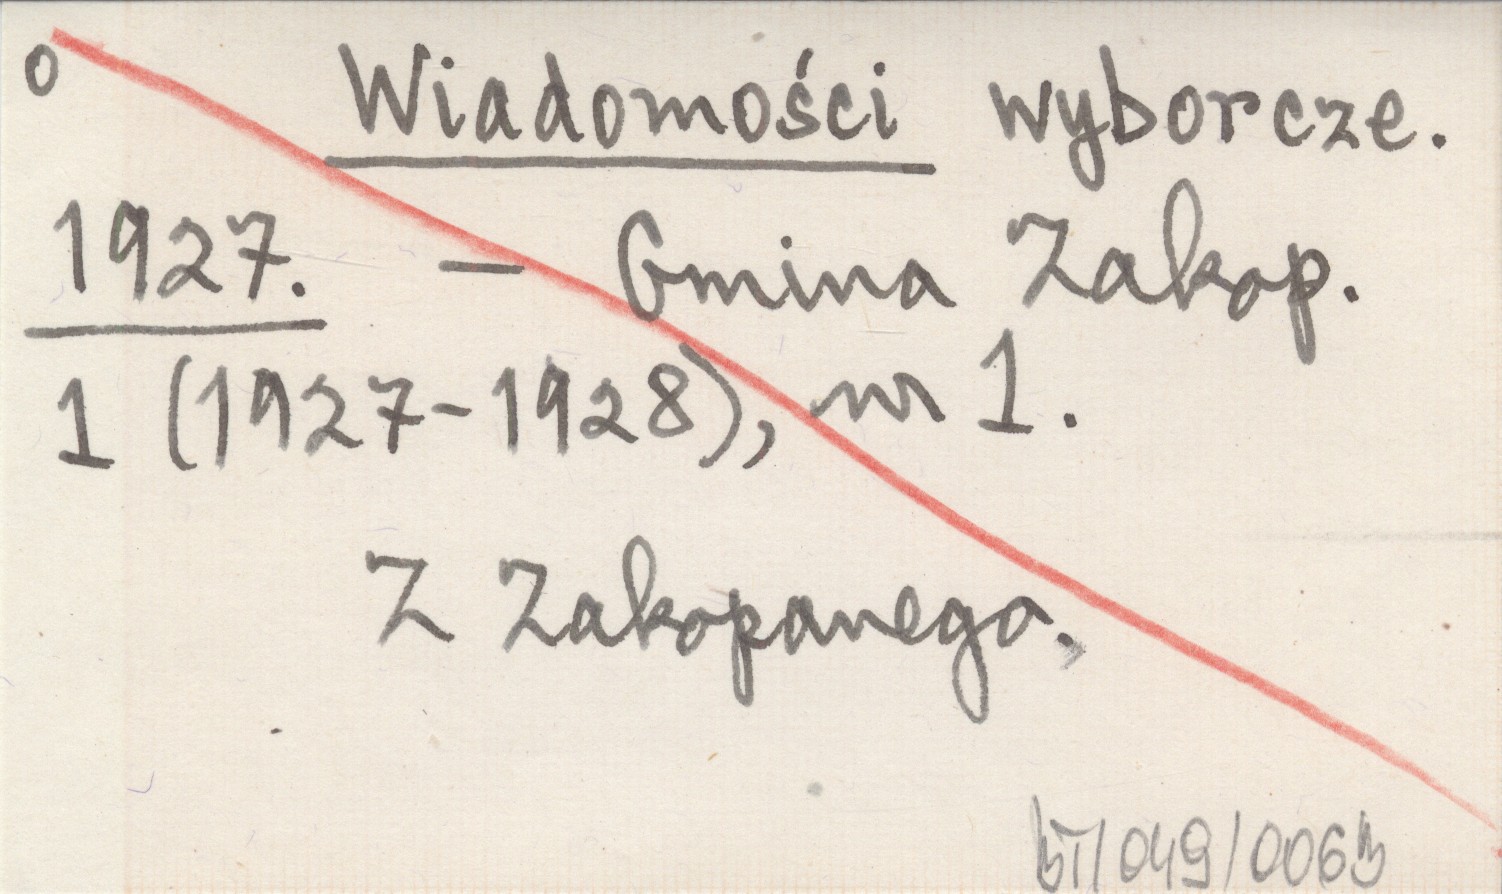 o Wiadomości wyborcze.
1927. – Gmina Zakop.
1 (1927-1928), nr 1.
Z Zakopanego.
BT/049/0063